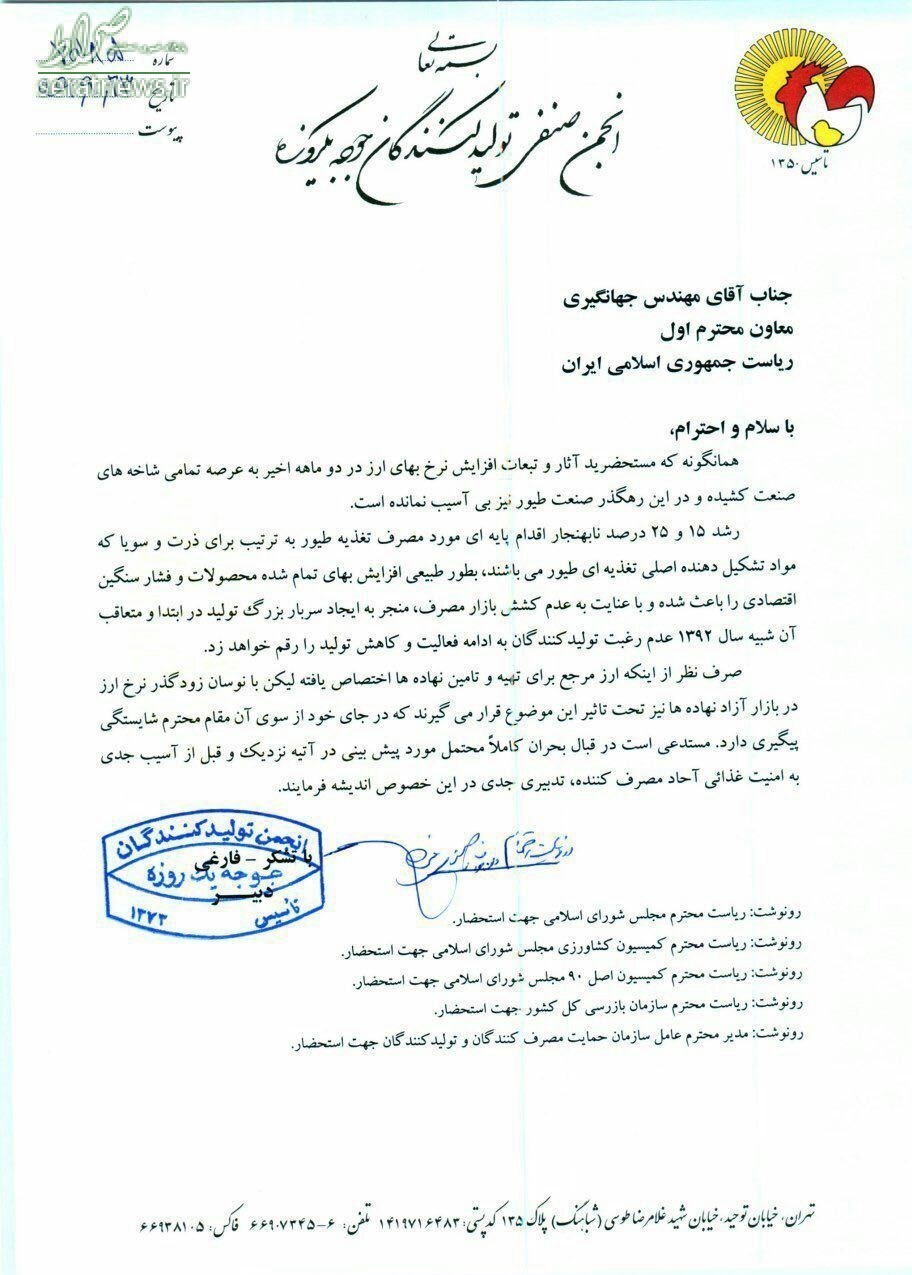 بسمه تعالی
انجمن صنفی تولیدکنندگان جوجه یکروزه
تاسیس ۱۳۵۰
شماره
تاریخ
پیوست
seratnews.ir
جناب آقای مهندس جهانگیری
معاون محترم اول
ریاست جمهوری اسلامی ایران
با سلام و احترام،
همانگونه که مستحضرید آثار و تبعات افزایش نرخ بهای ارز در دو ماهه اخیر به عرصه تمامی شاخه های
صنعت کشیده و در این رهگذر صنعت طیور نیز بی آسیب نمانده است.
رشد ۱۵ و ۲۵ درصد نابهنجار اقدام پایه ای مورد مصرف تغذیه طیور به ترتیب برای ذرت و سویا که
مواد تشکیل دهنده اصلی تغذیه ای طیور می باشند، بطور طبیعی افزایش بهای تمام شده محصولات و فشار سنگین
اقتصادی را باعث شده و با عنایت به عدم کشش بازار مصرف، منجر به ایجاد سربار بزرگ تولید در ابتدا و متعاقب
آن شبیه سال ۱۳۹۲ عدم رغبت تولیدکنندگان به ادامه فعالیت و کاهش تولید را رقم خواهد زد.
صرف نظر از اینکه ارز مرجع برای تهیه و تامین نهاده ها اختصاص یافته لیکن با نوسان زودگذر نرخ ارز
در بازار آزاد نهاده ها نیز تحت تاثیر این موضوع قرار می گیرند که در جای خود از سوی آن مقام محترم شایستگی
پیگیری دارد. مستدعی است در قبال بحران کاملاً محتمل مورد پیش بینی در آتیه نزدیک و قبل از آسیب جدی
به امنیت غذائی آحاد مصرف کننده، تدبیری جدی در این خصوص اندیشه فرمایند.
انجمن تولیدکنندگان
با تشکر - فارغی
جوجه یک روزه
دبیر
تأسیس ۱۳۷۳
رونوشت: ریاست محترم مجلس شورای اسلامی جهت استحضار.
رونوشت: ریاست محترم کمیسیون کشاورزی مجلس شورای اسلامی جهت استحضار.
رونوشت: ریاست محترم کمیسیون اصل ۹۰ مجلس شورای اسلامی جهت استحضار.
رونوشت: ریاست محترم سازمان بازرسی کل کشور جهت استحضار.
رونوشت: مدیر محترم عامل سازمان حمایت مصرف کنندگان و تولیدکنندگان جهت استحضار.
تهران، خیابان توحید، خیابان شهید غلامرضا طوسی (شباهنگ) پلاک ۱۳۵ کد پستی: ۱۴۱۹۷۱۶۴۸۳ تلفن: ۶-۶۶۹۰۷۳۴۵ فاکس: ۶۶۹۳۸۱۰۵